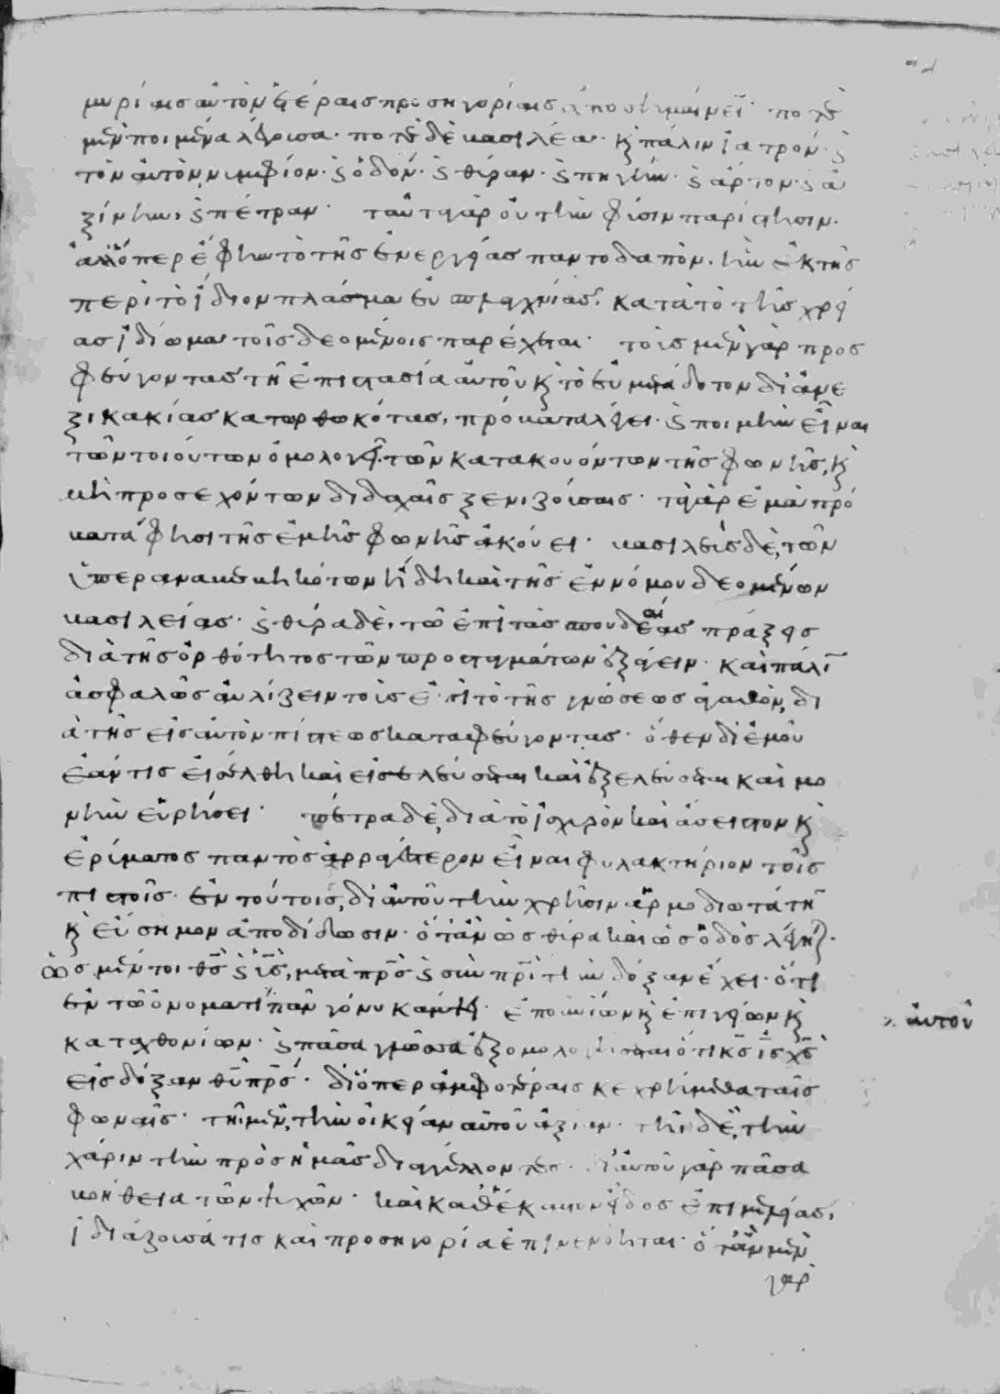 μυρίαις αὐτὸν ἑτέραις προσηγορίαις ἀποσημαίνει· ποτὲ
μὲν ποιμένα λέγουσα· ποτὲ δὲ βασιλέα· κ πάλιν ἰατρόν· κ
τὸν αὐτὸν νυμφίον· κ ὁδόν· κ θύραν· κ πηγὴν· κ ἄρτον· κ ἀ
ξίνην, κ πέτραν· ταῦτα γὰρ οὐ τὴν φύσιν παρίστησιν·
ἀλλ' ὅπερ ἔφην τὸ τῆς ἐνεργείας παντοδαπὸν· ἣν ἐκ τῆς
περὶ τὸ ἴδιον πλάσμα εὐσπλαχνίας, κατὰ τὸ τῆς χρεί
ας ἰδίωμα τοῖς δεομένοις παρέχεται· τοὺς μὲν γὰρ προσ
φεύγοντας τῆ ἐπιστασία αὐτοῦ κ τὸ εὐμετάδοτον δι' ἀνε
ξικακίας κατορθωκότας, πρόβατα λέγει· κ ποιμὴν εἶναι
τῶν τοιούτων ὁμολογεῖ· τῶν κατακουόντων τῆς φωνῆς, κ
μὴ προσεχόντων διδαχαῖς ξενιζούσαις· τὰ γὰρ ἐμὰ πρό
βατά φησι τῆς ἐμῆς φωνῆς ἀκούει· βασιλεὺς δὲ, τῶν
ὑπεραναβεβηκότων ἤδη καὶ τῆς ἐννόμου δεομένων
βασιλείας· κ θύρα δὲ, τῶ ἐπὶ τὰς σπουδαίας πράξεις
διὰ τῆς ὀρθότητος τῶν προσταγμάτων ἐξάγειν· καὶ πάλιν
ἀσφαλῶς αὐλίζειν τοὺς ἐπὶ τὸ τῆς γνώσεως ἀγαθὸν, δι
ὰ τῆς εἰς αὐτὸν πίστεως καταφεύγοντας· ὅθεν δι' ἐμοῦ
ἐάν τις εἰσέλθη καὶ εἰσελεύσεται καὶ ἐξελεύσεται καὶ νο
μὴν εὑρήσει· πέτρα δὲ, διὰ τὸ ἰσχυρὸν καὶ ἄσειστον κ
ἐρύματος παντὸς ἀρραγέστερον εἶναι φυλακτήριον τοῖς
πιστοῖς· ἐν τούτοις, δι' αὐτοῦ τὴν χρῆσιν ἁρμοδιωτάτην
κ εὔσημον ἀποδίδωσιν· ὅταν ὡς θύρα καὶ ὡς ὁδὸς λέγηται·
ὡς μέντοι θς κ υς, μετὰ πρς κ σὺν πρι τὴν δόξαν ἔχει· ὅτι
ἐν τῶ ὀνόματι πᾶν γόνυ κάμψει· ἐπουνίων κ ἐπιγείων κ
καταχθονίων· κ πᾶσα γλῶσσα ἐξομολογήσεται ὅτι κς ις χς
εἰς δόξαν θυ πρς· διόπερ ἀμφοτέραις κεχρήμεθα ταῖς
φωναῖς· τῆ μὲν, τὴν οἰκείαν αὐτοῦ ἀξίαν· τῆ δὲ, τὴν
χάριν τὴν πρὸς ἡμᾶς διαγγέλλοντες· δι' αὐτοῦ γὰρ πᾶσα
βοήθεια τῶν ψυχῶν· καὶ καθ' ἕκαστον εἶδος ἐπιμελείας,
ἰδιάζουσά τις καὶ προσηγορία ἐπινενόηται· ὅταν μὲν
γὰρ
αὐτοῦ